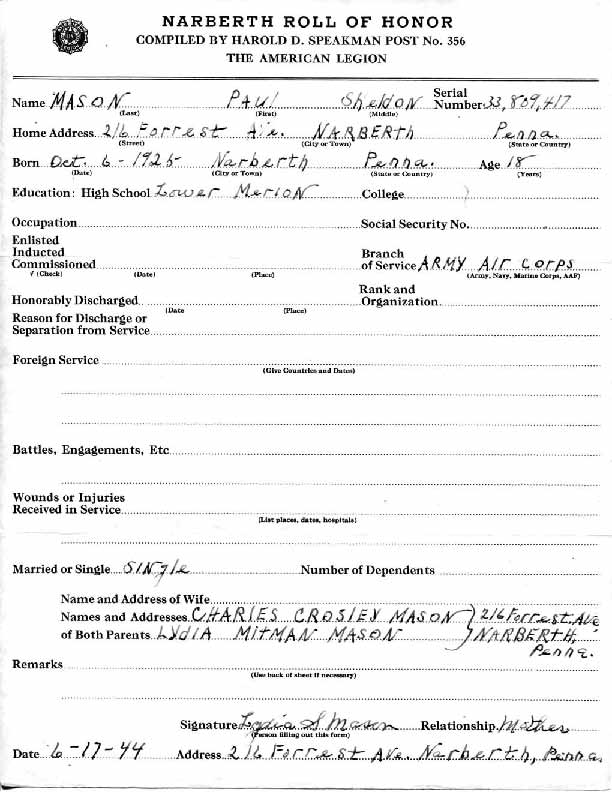 NARBERTH ROLL OF HONOR
COMPILED BY HAROLD D. SPEAKMAN POST No. 356
THE AMERICAN LEGION
Name MASON PAUL SHELDON Serial Number 33,809,417
(Last) (First) (Middle)
Home Address 216 Forrest Ave. NARBERTH Penna.
(Street) (City or Town) (State or Country)
Born Oct. 6-1925 Narberth Penna. Age 18
(Date) (City or Town) (State or Country) (Years)
Education: High School Lower Merion College
Occupation Social Security No.
Enlisted
Inducted Branch
Commissioned of Service ARMY AIR CORPS
√ (Check) (Date) (Place) (Army, Navy, Marine Corps, AAF)
Rank and
Honorably Discharged Organization
(Date (Place)
Reason for Discharge or
Separation from Service
Foreign Service
(Give Countries and Dates)
Battles, Engagements, Etc
Wounds or Injuries
Received in Service
(List places, dates, hospitals)
Married or Single Single Number of Dependents
Name and Address of Wife
Names and Addresses CHARLES CROSLEY MASON } 216 Forrest Ave
of Both Parents LYDIA MITMAN MASON } NARBERTH,
Penna.
Remarks
(Use back of sheet if necessary)
Signature Lydia S Mason Relationship Mother
(Person filling out this form)
Date 6-17-44 Address 216 Forrest Ave. Narberth, Penna.